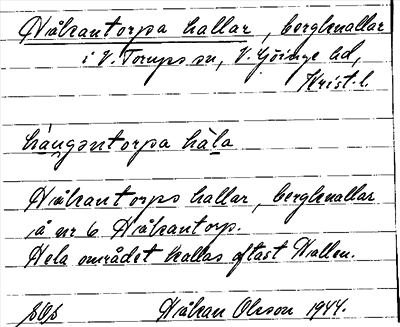 Håkantorpa hallar, bergknallar
i V. Torups sn, V. Göinge hd,
Krist. l.
hångəntorpa håla
Håkantorps hallar, bergknallar
å nr 6 Håkantorp.
Hela området kallas oftast Hallen.
Håkan Olsson 1944.